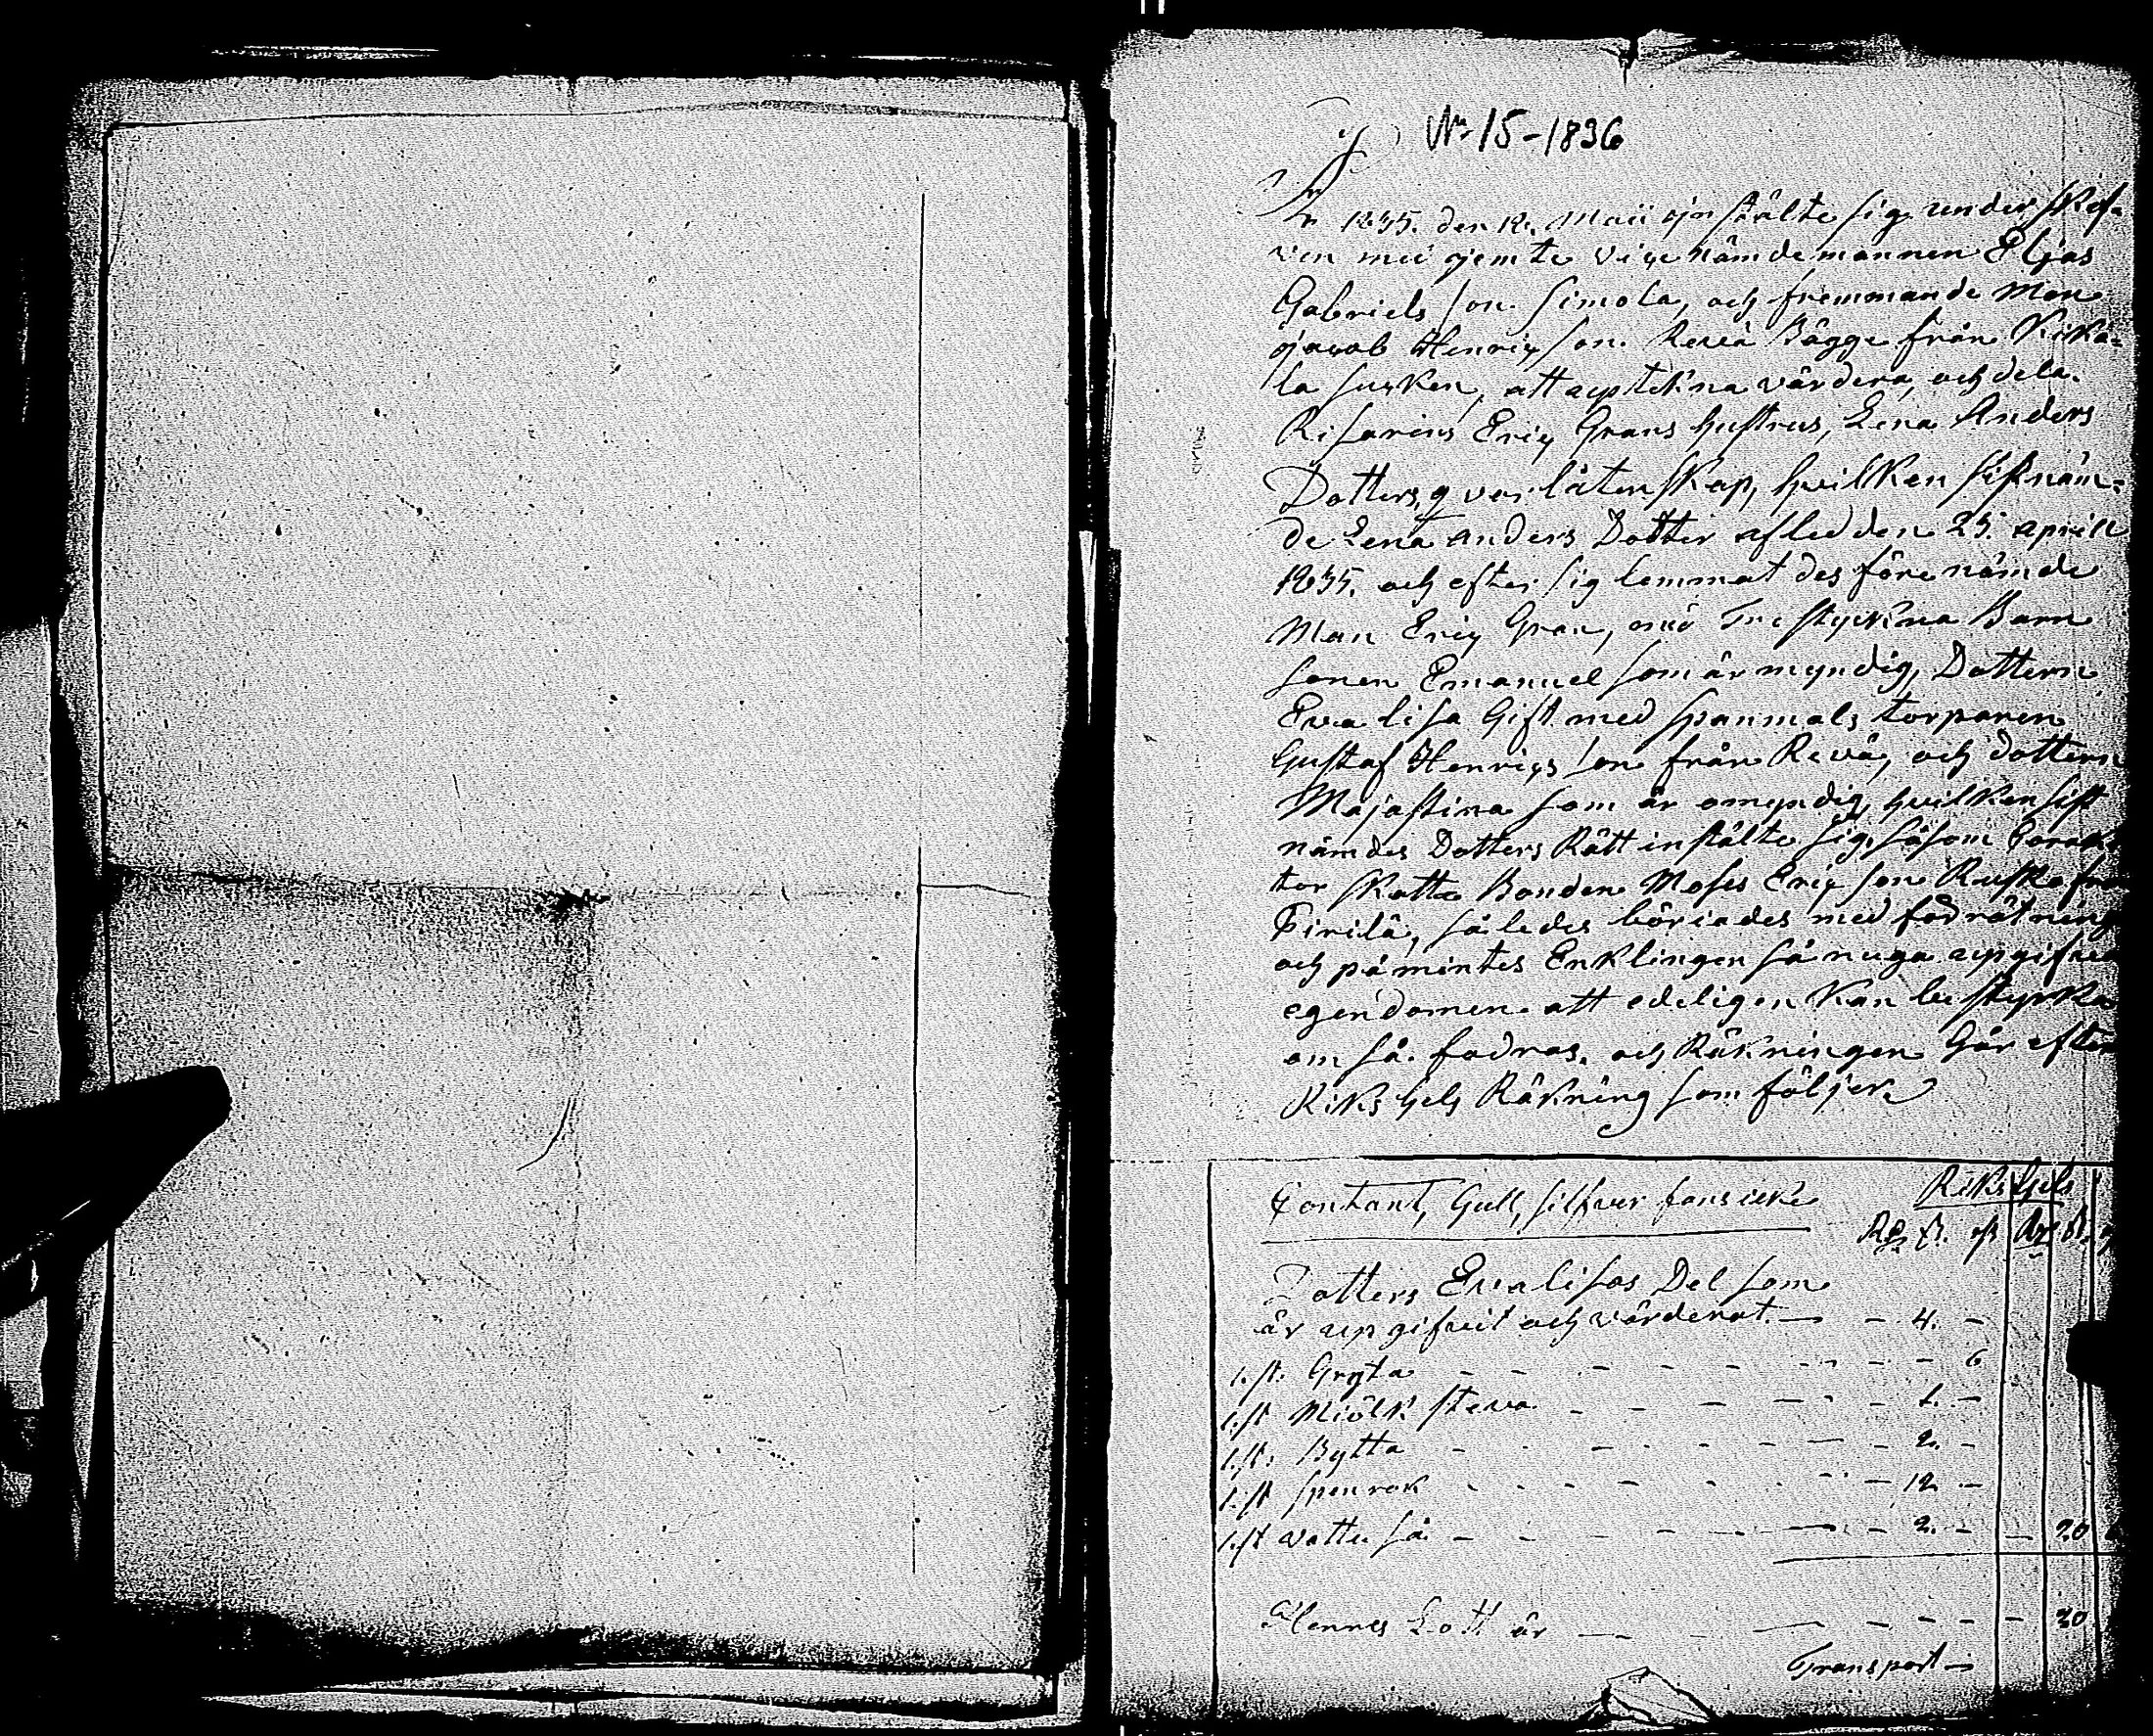 No 15-1836
År 1835. den 12. Maii instälte sig underskref-
ven med jemte vice nämdemannen Eljas
Gabriels son Simola, och fremmande Man
Jacob Henricsson Revä Bägge från Kikä=
la sucken, att uptekna värdera, och dela
Eric Grans hustrus, Lena Anders
Dotters, qvarlåtenskap, hvilken sistnäm=
de Lena Anders Dotter afled den 25. aprill
1835. och efter sig lemmat des förenämde
Man Eric Gran, med Tre styckna Barn
Sonen Emanuel som är myndig, Dottern
Eva lisa Gift med spanmals torparen
Gustaf Henrics son från Revä, och dottern
Majastina som är omyndig, hvilken sist
nämdes Dotters Rätt instälte sig, såsom
tor Skatte Bonden Moses Eric son Ruska från
Kirilä, således böriades med fodrätning
och påmintes Enklingen så noga upgifva
egendomen att edeligen kan bestyrka
om så fodras, och Räkningen Går efter
Riks Gels Räkning som följer
Contant, Gull, silfver fans icke
Riks Gels
Dotters Evalisas Del som
är upgifvit och värderat. — - 4. -
1. st. Gryta - - - - - - 6
1. st Miölk steva - - - - 1. -
1. st. Bytta - - - - - 2. -
1. st spenrok - - - - 12. -
1. st vattu så - - - - 2. - - 20
Hennes Lott är - - - - - 20
Transport -